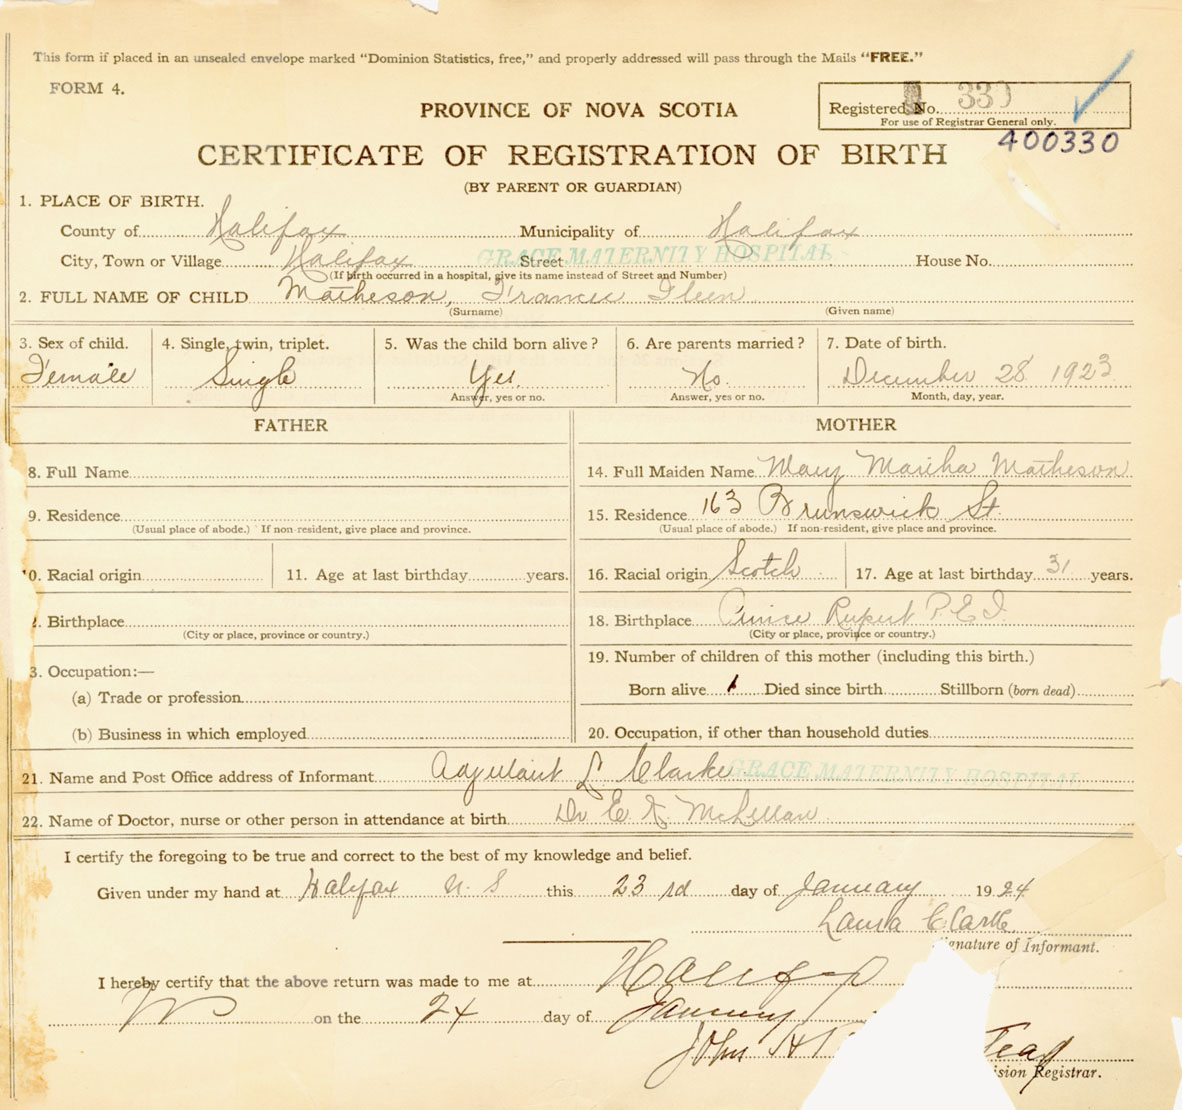 This form if placed in an unsealed envelope marked "Dominion Statistics, free," and properly addressed will pass through the Mails "FREE."
FORM 4.
PROVINCE OF NOVA SCOTIA
Registered No. 330
For use of Registrar General only.
400330
CERTIFICATE OF REGISTRATION OF BIRTH
(BY PARENT OR GUARDIAN)
1. PLACE OF BIRTH.
County of Halifax Municipality of Halifax
GRACE MATERNITY HOSPITAL
City, Town or Village Halifax Street House No.
(If birth occurred in a hospital, give its name instead of Street and Number)
2. FULL NAME OF CHILD Matheson, Frances Ileen
(Surname) (Given name)
3. Sex of child. 4. Single, twin, triplet. 5. Was the child born alive? 6. Are parents married? 7. Date of birth.
Female Single Yes. No. December 28 1923
Answer, yes or no. Answer, yes or no. Month, day, year.
FATHER MOTHER
8. Full Name 14. Full Maiden Name Mary Martha Matheson
9. Residence 15. Residence 163 Brunswick St.
(Usual place of abode.) If non-resident, give place and province. (Usual place of abode.) If non-resident, give place and province.
0. Racial origin 11. Age at last birthday years. 16. Racial origin Scotch 17. Age at last birthday 31 years.
2. Birthplace 18. Birthplace Prince Rupert P.E.I.
(City or place, province or country.) (City or place, province or country.)
3. Occupation:— 19. Number of children of this mother (including this birth.)
(a) Trade or profession Born alive 1 Died since birth Stillborn (born dead)
(b) Business in which employed 20. Occupation, if other than household duties
21. Name and Post Office address of Informant Adjutant L. Clarke GRACE MATERNITY HOSPITAL
22. Name of Doctor, nurse or other person in attendance at birth Dr E. K. McLellan
I certify the foregoing to be true and correct to the best of my knowledge and belief.
Given under my hand at Halifax N.S this 23rd day of January 1924
Laura Clarke
Signature of Informant.
I hereby certify that the above return was made to me at Halifax
on the 24 day of January
John H
ision Registrar.